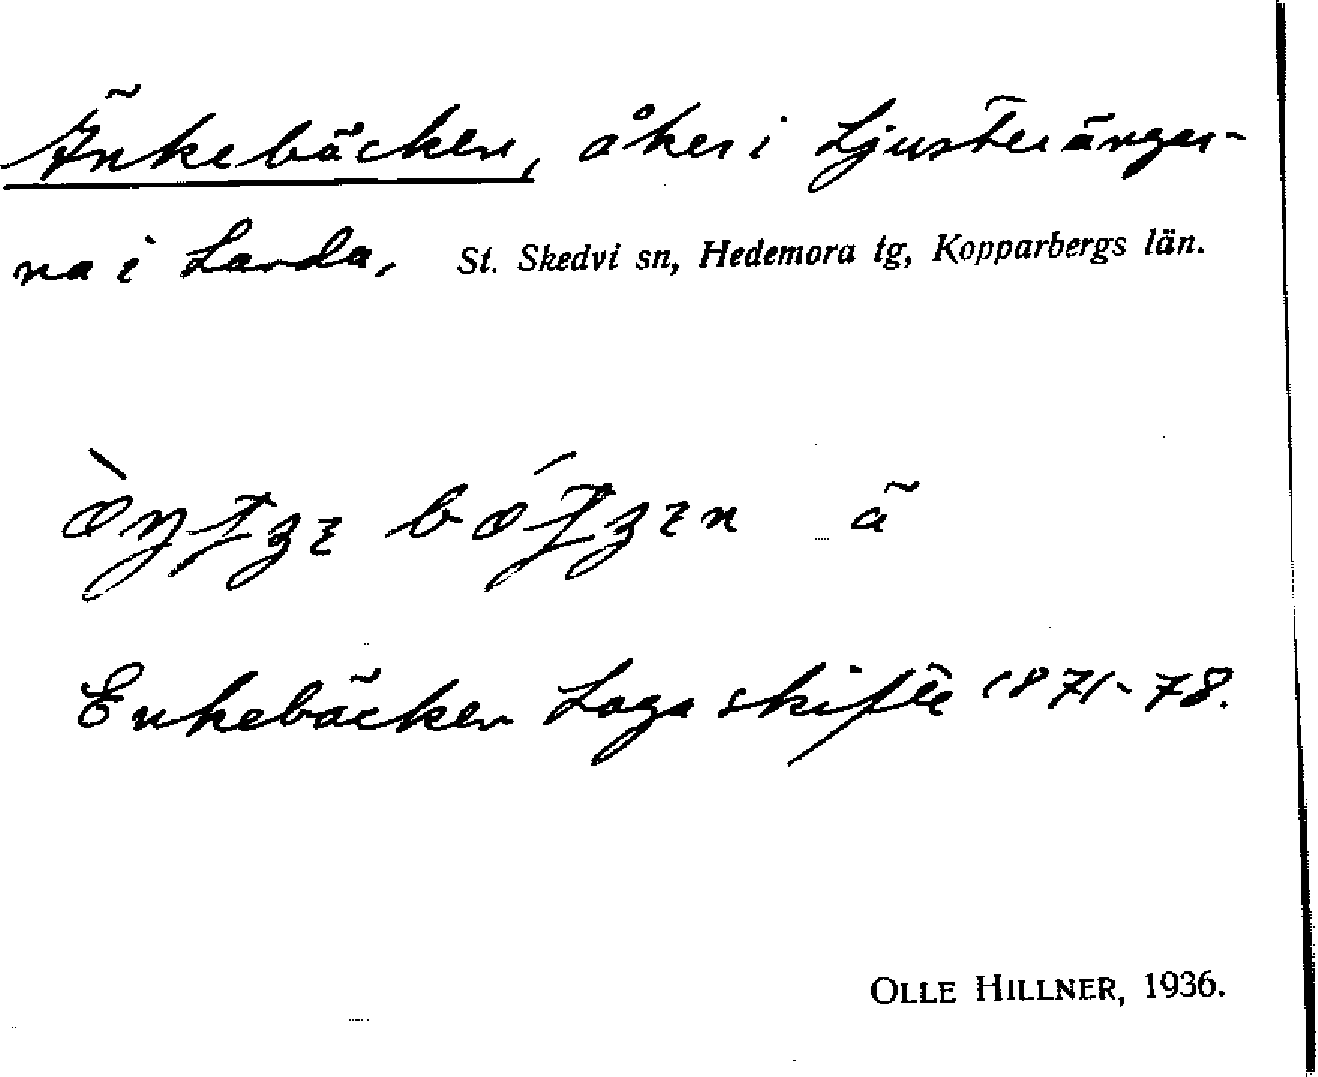 Änkebäcken, åker i Ljusterängar-
na i Landa, St. Skedvi sn, Hedemora tg, Kopparbergs län.
ä
Enkebäcken Laga skifte 1871-78.
OLLE HILLNER, 1936.